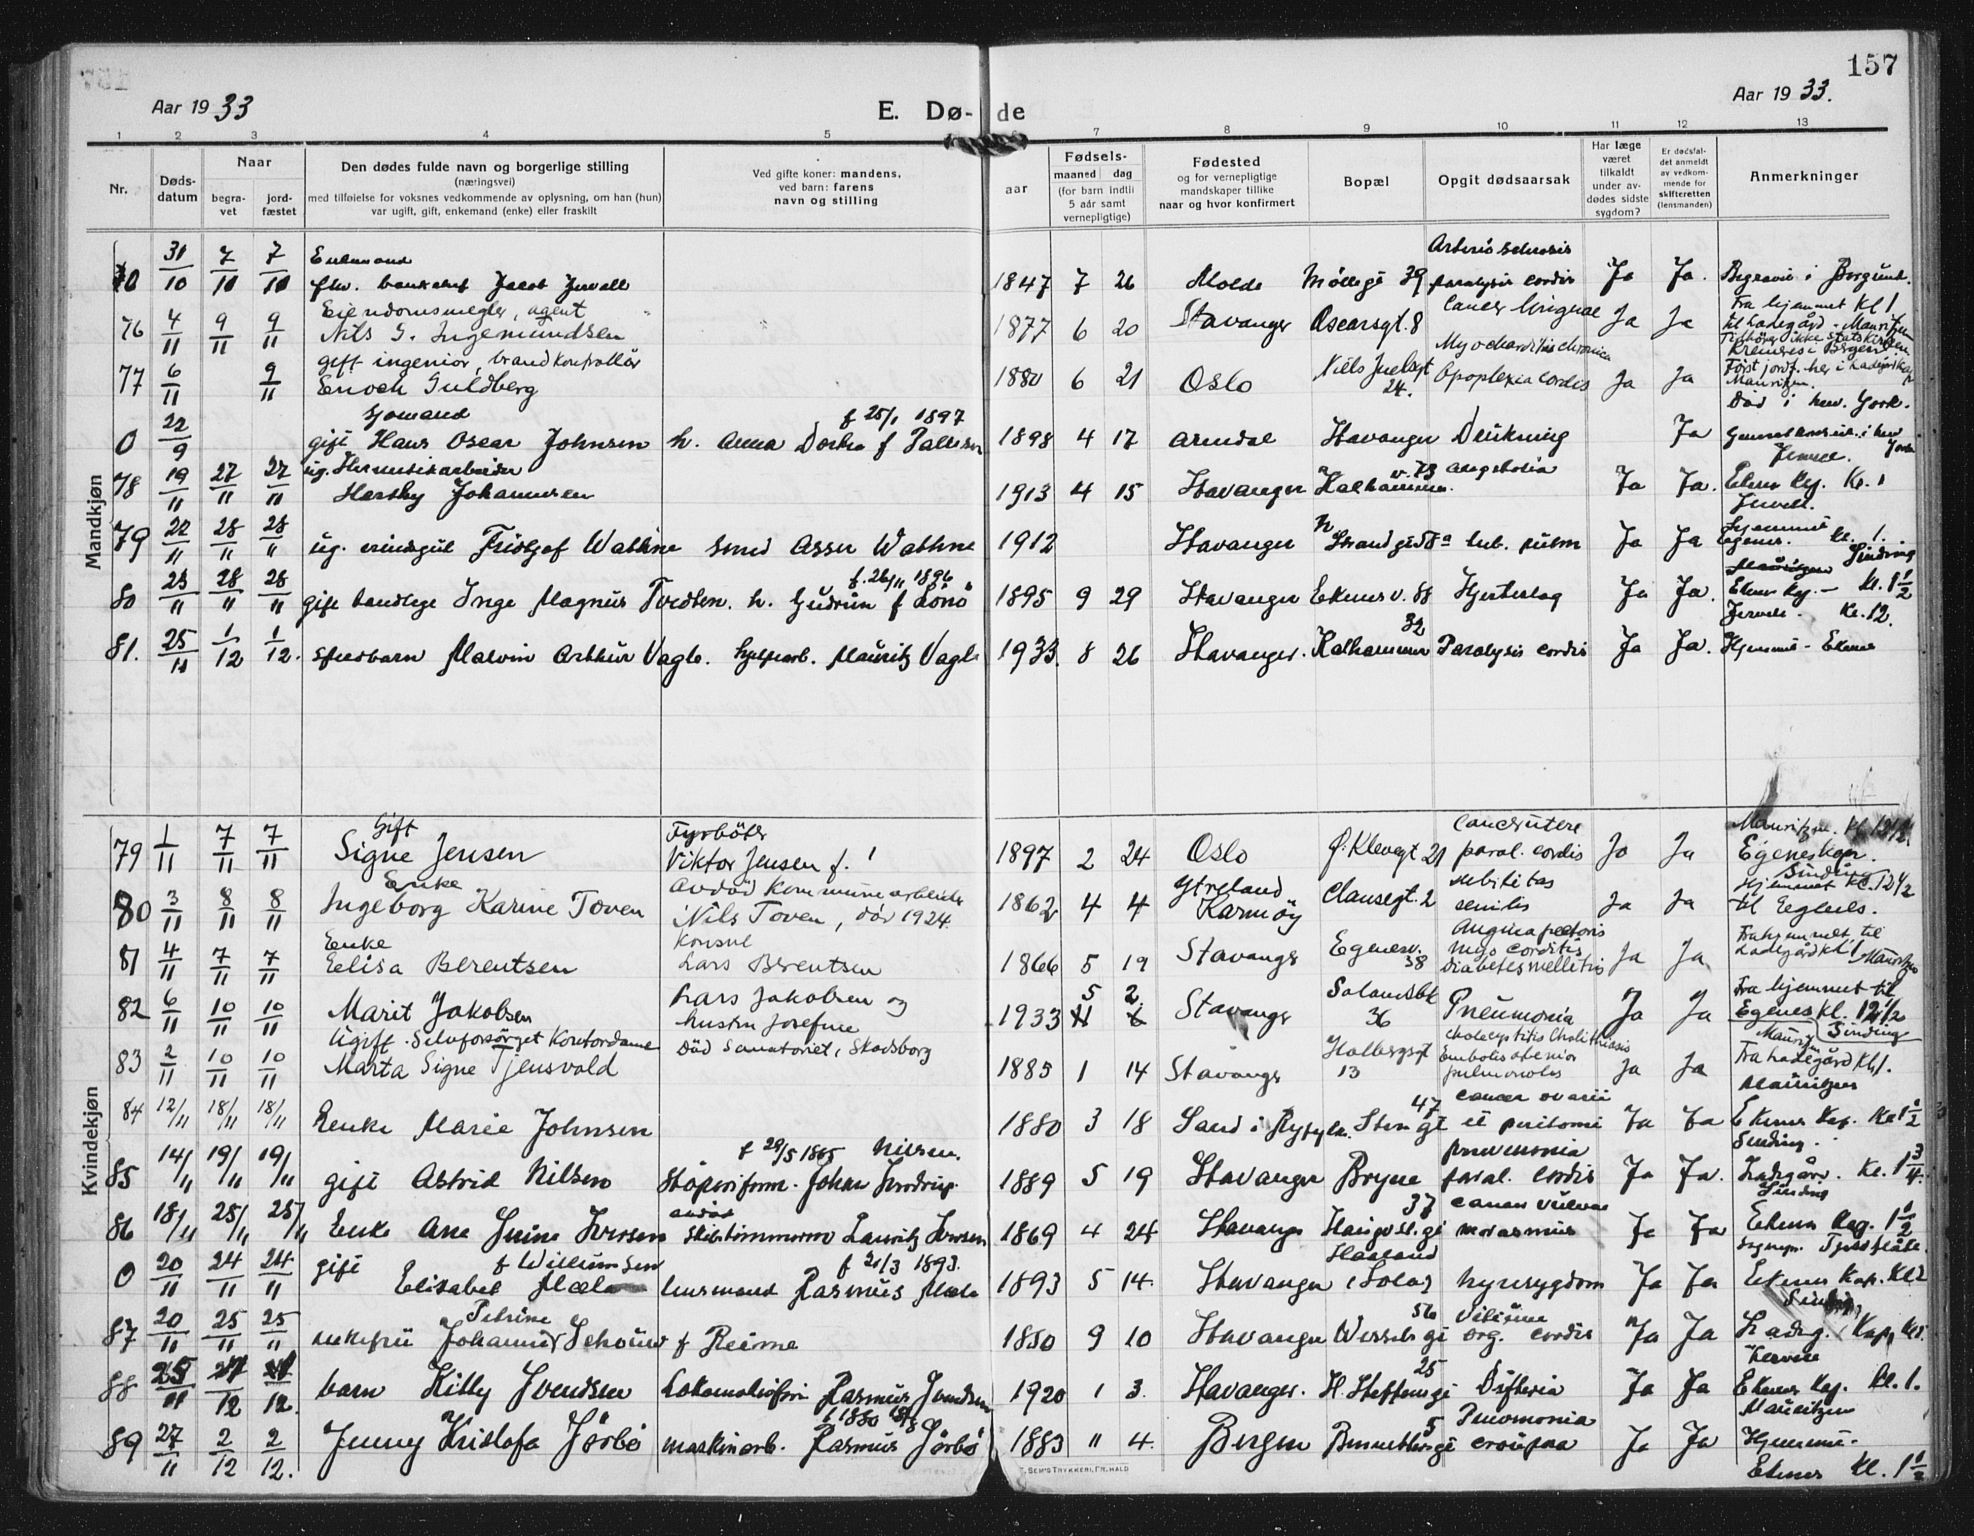 157
Aar 1933
E. Dø- de
Aar 1933.
1 2 3 4 5 6 7 8 9 10 11 12 13
Nr.
Døds-
datum
Naar
begra-
vet
jord-
fæstet
Den dødes fulde navn og borgerlige stilling
(næringsvei)
med tilføielse for voksnes vedkommende av oplysning, om han (hun)
var ugift, gift, enkemand (enke) eller fraskilt
Ved gifte koner: mandens,
ved barn: farens
navn og stilling
Fødsels-
aar
maaned dag
(for barn indtil
5 aar samt
vernepligtige)
Fødested
og for vernepligtige
mandskaper tillike
naar og hvor konfirmert
Bopæl
Opgit dødsaarsak
Har læge
været
tilkaldt
under av-
dødes sidste
sygdom?
Er dødsfal-
det anmeldt
av vedkom-
mende for
skifteretten
(lensmanden)
Anmerkninger
Mandkjøn
Enkemand Arteriosclerosis
0 31/10 7/11 7/11 fhv. banksjef Jacob Jervell 1847 7 26 Molde Møllegt 39 paralysis cordis Ja Ja. Begravet i Borgund.
Eiendomsmegler, agent Cancer Fra hjemmet Kl 1
76 4/11 9/11 9/11 Nils G. Ingemundsen 1877 6 20 Stavanger Oscarsgt. 8 Ja Ja til Ladegård - Mauritzen
gift ingeniør, brandkontrollør Myocarditis chronica Tilhører ikke statskirken
Kremeres i Bergen.
77 6/11 9/11 Enoch Guldberg 1880 6 21 Oslo Niels Juelsgt 24. Apoplexia cordis Ja Ja Først jordf. her i Ladegårdskap
Mauritzen.
Sjømand f 25/1 1897 Død i New York.
0 22/9 gift Hans Oscar Johnsen h. Anna Dorthea f Pallesen 1898 4 17 Arendal Stavanger Drukning Ja
ug. Hermetikarbeider v. 73 Jervell.
78 19/11 27/11 27/11 Johannesen 1913 4 15 Stavanger Kalhammer Ja Ja. Ekenes Kp. Kl. 1
Jervell.
79 22/11 28/11 28/11 ug. Fridtjof Wathne smed Asser Wathne 1912 Stavanger Strandgt 58a tub. pulm Ja Ja Hjemmet Egenes. Kl. 1.
Sinding
f. 26/11 1896
80 23/11 28/11 28/11 gift tandlege Inge Magnus Tvedten. h. Gudrun f Lønø 1895 9 29 Stavanger Ekenesv. 88 Hjerteslag Ja Ja. Ekenes Kp. - Kl. 1 1/2
32 Jervell - Kl. 12.
81. 25/11 1/12 1/12. spedbarn Malvin Arthur Vagle. hjelpearb. Mauritz Vagle 1933. 8 26 Stavanger. Kalhammer Paralysis cordis Ja Ja. Hjemme - Ekenes
Kvindekjøn
Gift Fyrbøter Mauritzen. Kl 12 1/2
79 1/11 7/11 7/11 Signe Jensen Viktor Jensen f. 1897 2 24 Oslo Ø. Klevegt 21 paral. cordis Ja Ja Egeneskap.
Enke Avdød kommunearbeider debilitas Sinding
80 3/11 8/11 8/11 Ingeborg Karine Toven Nils Toven, død 1924. 1862 4 4 Ytreland Karmøy Clausegt. 2 senilis Ja Ja Hjemmet Kl. 12 1/2
til Egenes.
Enke Konsul Angina pectoris Fra hjemmet til
81 4/11 7/11 7/11 Elisa Berentsen Lars Berentsen 1866 5 19 Stavanger Egenesv. 38 myocarditis Diabetes mellitis Ja Ja Ladegård Kl 1 Mauritzen
82 6/11 10/11 10/11 Marit Jakobsen Lars Jakobsen og hustru Josefine 1933 5 2. Stavanger Solandsbk 36 Pneumonia Ja Ja Fra hjemmet til
Egenes kl. 12 1/2
Sinding
Ugift. Selvforsørget Kontordame Død Sanatoriet, Skodsborg cholecystitis Cholithiasis Mauritzen
83 2/11 10/11 10/11 Marta Signe Tjensvold 1885 1 14 Stavanger Holbergsgt 13 Ja Ja Fra Ladegård Kl 1.
Mauritzen
84 12/11 18/11 18/11 Enke Marie Johnsen 1880 3 18 Sand i Ryfylke. Stengt 47 cancer ovarii et peritonei Ja Ja Ekenes Kap. Kl 1 1/2
Sinding.
f 29/5 1865 Nilsen. pneumonia
85 14/11 19/11 19/11 gift Astrid Nilsen Støperiform. Johan 1889 5 19 Stavanger Bryne paral. cordis Ja Ja. Ladegård. Kl. 1 3/4.
Sinding
avdød 37 cancer vulvae
86 18/11 25/11 25/11 Enke Ane Iversen Skibstømmerm Lauritz Iversen 1869 4 24 Stavanger marasmus Ja Ja Ekenes Kap. 1 1/2
f Willumsen f 21/3 1893. Hasland
0 20/11 24/11 24/11 gift Elisabet Mæle husmand Rasmus Mæle 1893 5 14. Stavanger (Sola) Nyresygdom Ja Ja Ekenes Kap. Kl 2
Petrine 56 Vitium Sinding
87 20/11 25/11 25/11 Johanne Schouw f Reime 1850 9 10 Stavanger Wesselsgt org. cordis Ja Ja Ladeg. Kap.
25 Jervell
88 25/11 /12 /12. barn Kitty Svendsen Lokomotivfører Rasmus Svendsen 1920 1 3. Stavanger. H. Steffensgt Difteria Ja Ja Ekenes Kap. Kl. 1.
5 Pneomonia Mauritzen
89 27/11 2/12 2/12. Jenny Kristofa Jørbø maskinarb. Rasmus Jørbø 1883 11 4. Bergen crouposa Ja Ja Hjemme -
Ekenes Kl. 1 1/2
SEM'S TRYKKERI, FR.HALD